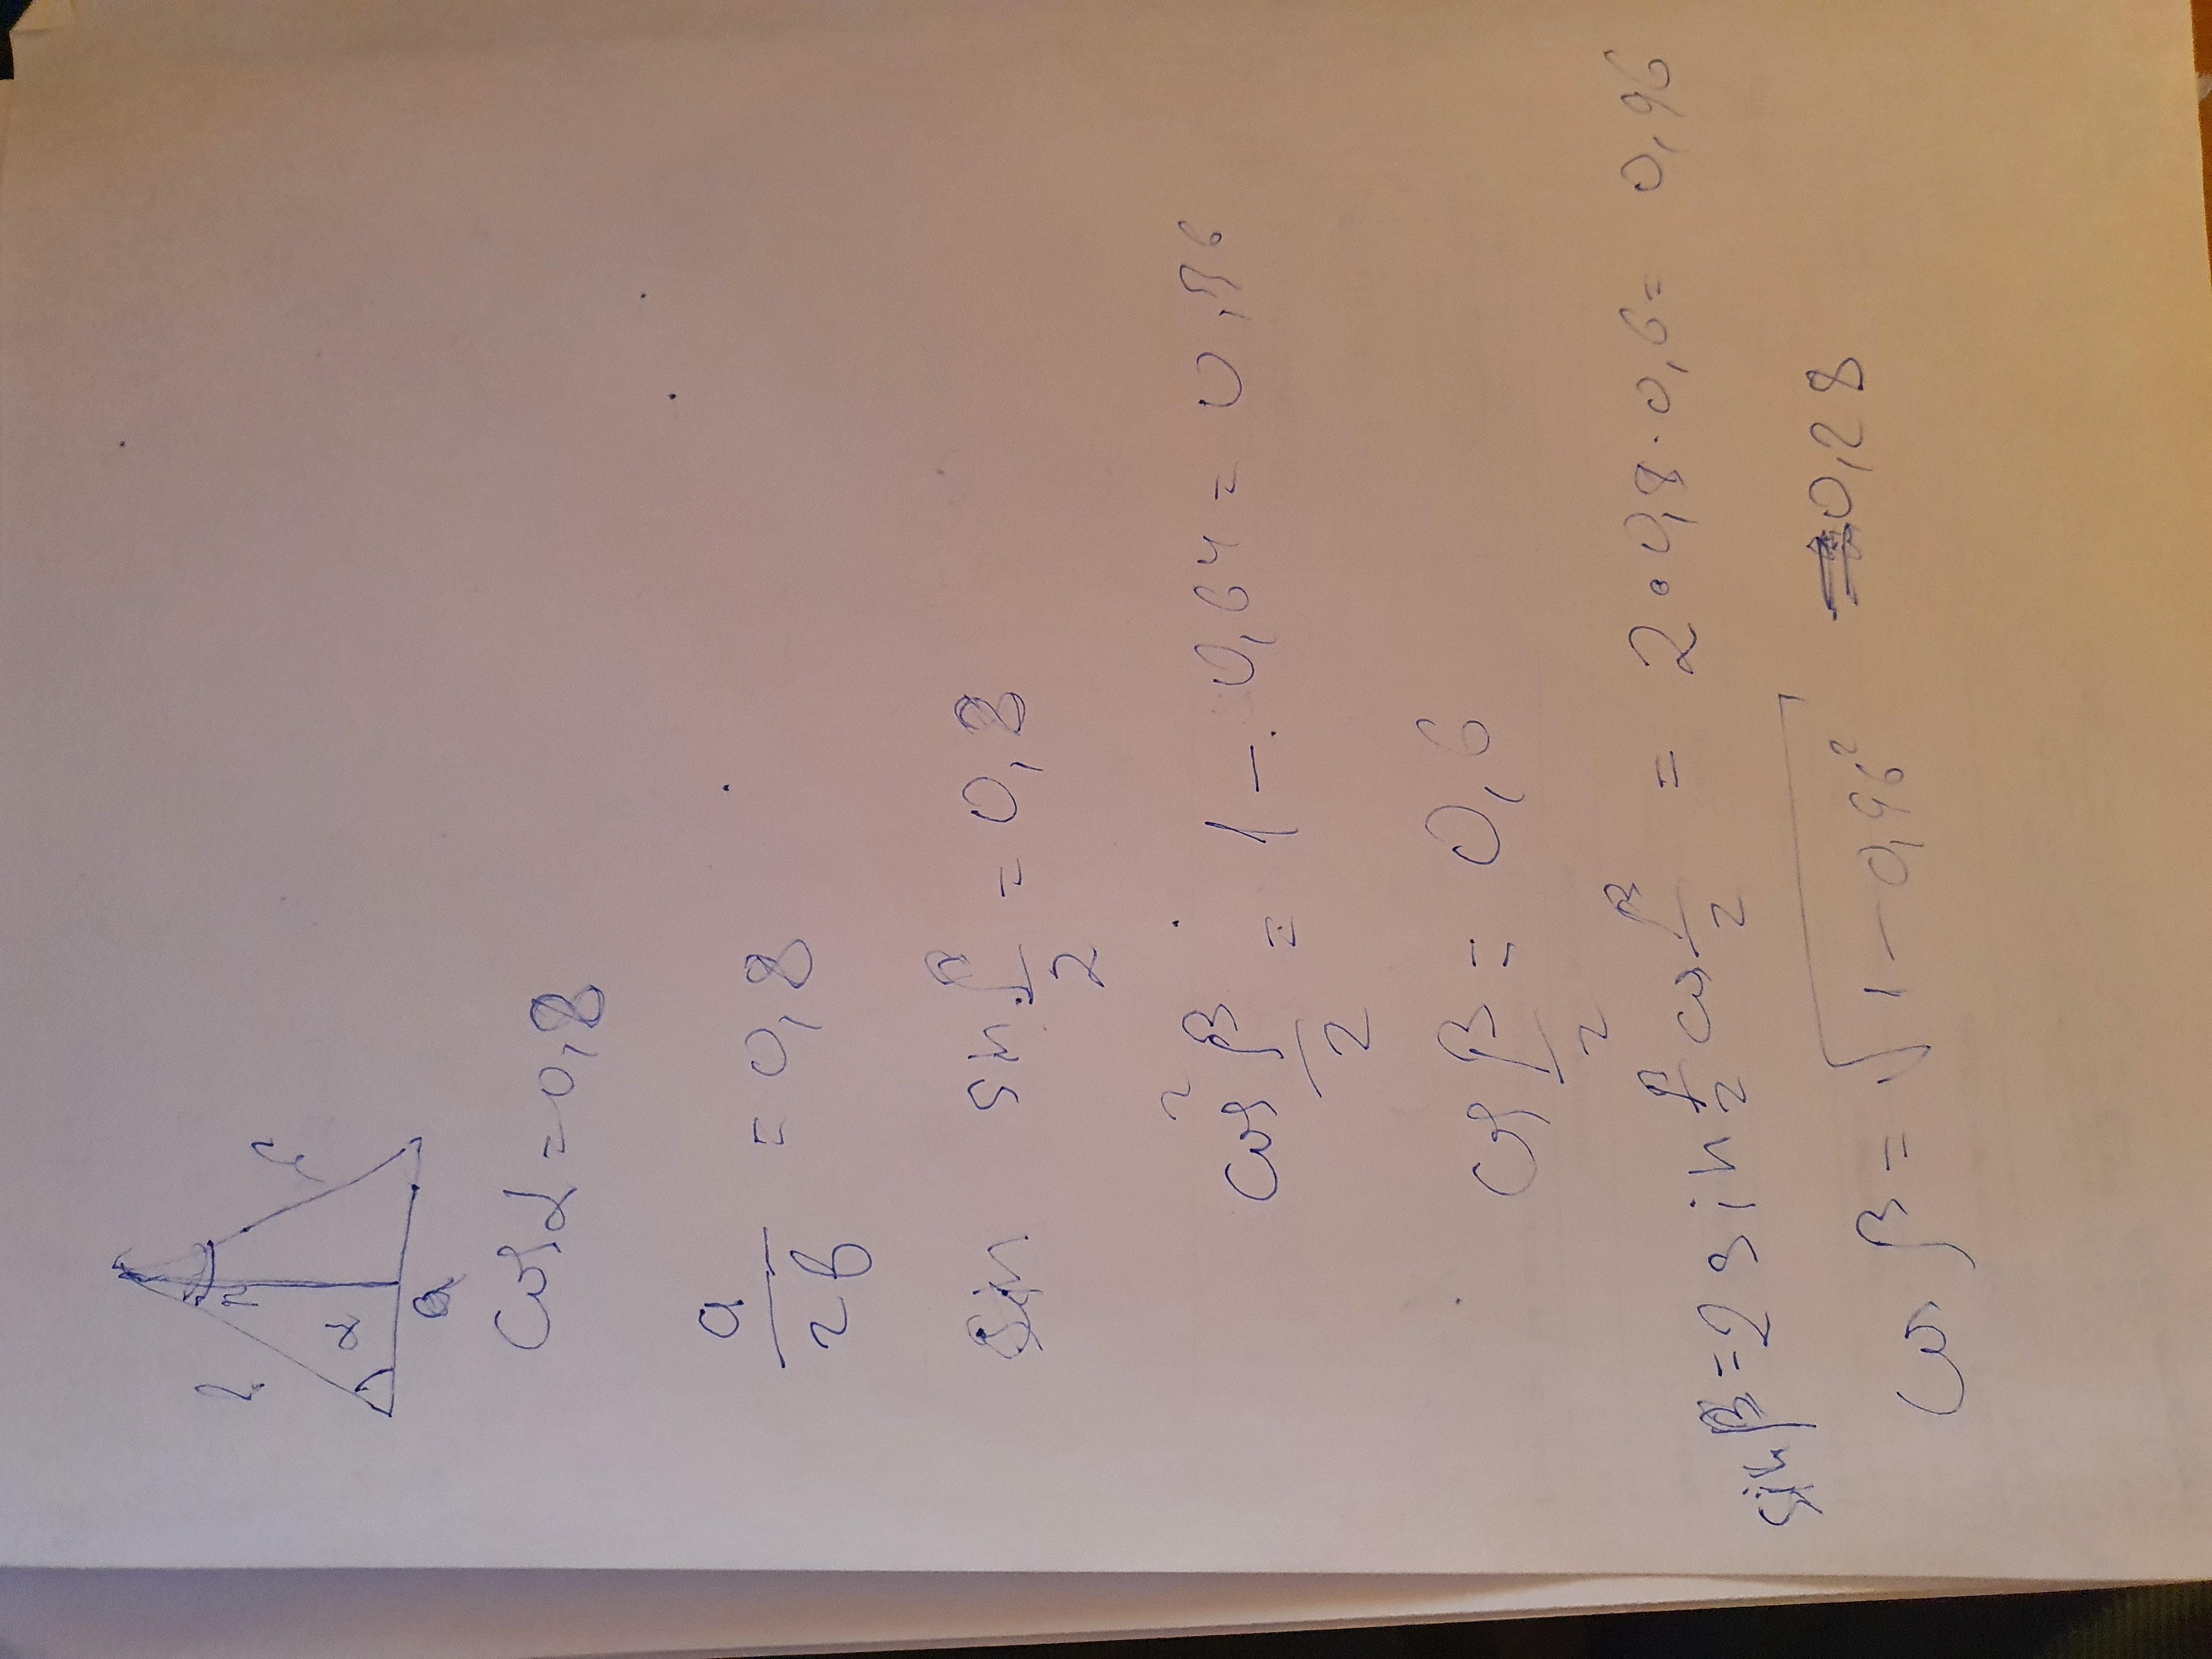 b b
β
α
a
cos α = 0,8
a/2b = 0,8
sin β/2 = 0,8
cos² β/2 = 1 - 0,64 = 0,36
cos β/2 = 0,6
sin β = 2 sin β/2 cos β/2 = 2 · 0,8 · 0,6 = 0,96
cos β = √1 - 0,96² = 0,28